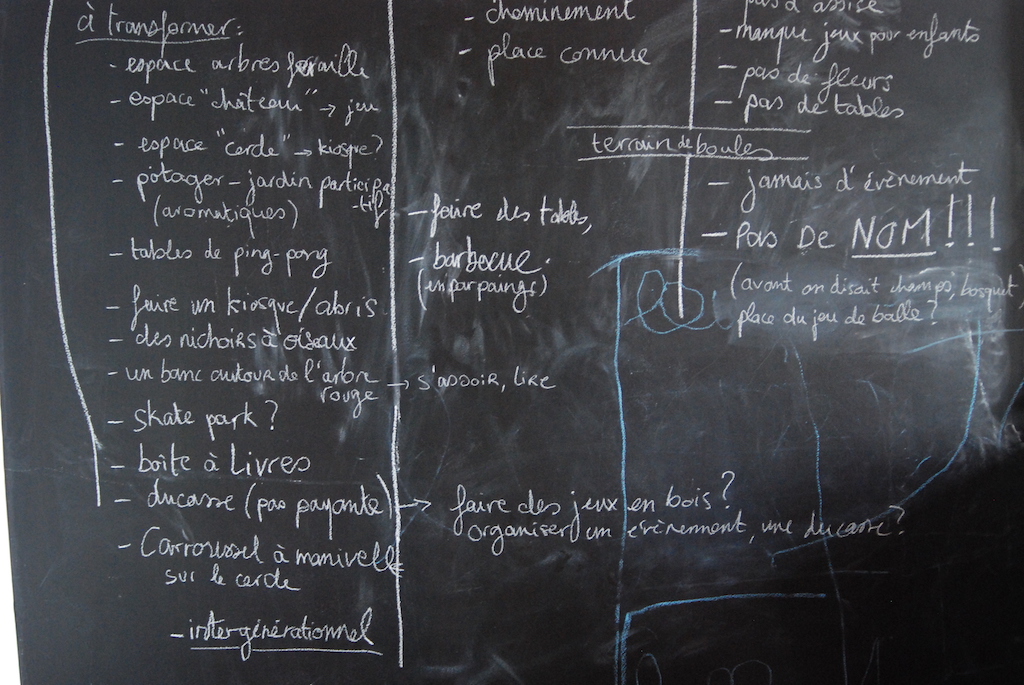 à transformer:
- espace arbres
- espace "château" → jeu
- espace "cercle" → kiosque?
- potager - jardin participa
-tif
(aromatiques)
- tables de ping-pong
- faire un kiosque/abris
- des nichoirs à oiseaux
- un banc autour de l'arbre
rouge
→ s'assoir, lire
- skate park ?
- boîte à Livres
- ducasse (pas payante)
→ faire des jeux en bois ?
organiser un évènement, une ducasse?
- Carroussel à manivelle
sur le cercle
- intergénérationnel
- cheminement
- place connue
- faire des tables,
- barbecue.
(en parpaings)
pas d'assise
- manque jeux pour enfants
- pas de fleurs
- pas de tables
terrain de boules
- jamais d'évènement
- PAS DE NOM!!!
(avant on disait champs, bosquet)
place du jeu de balle?